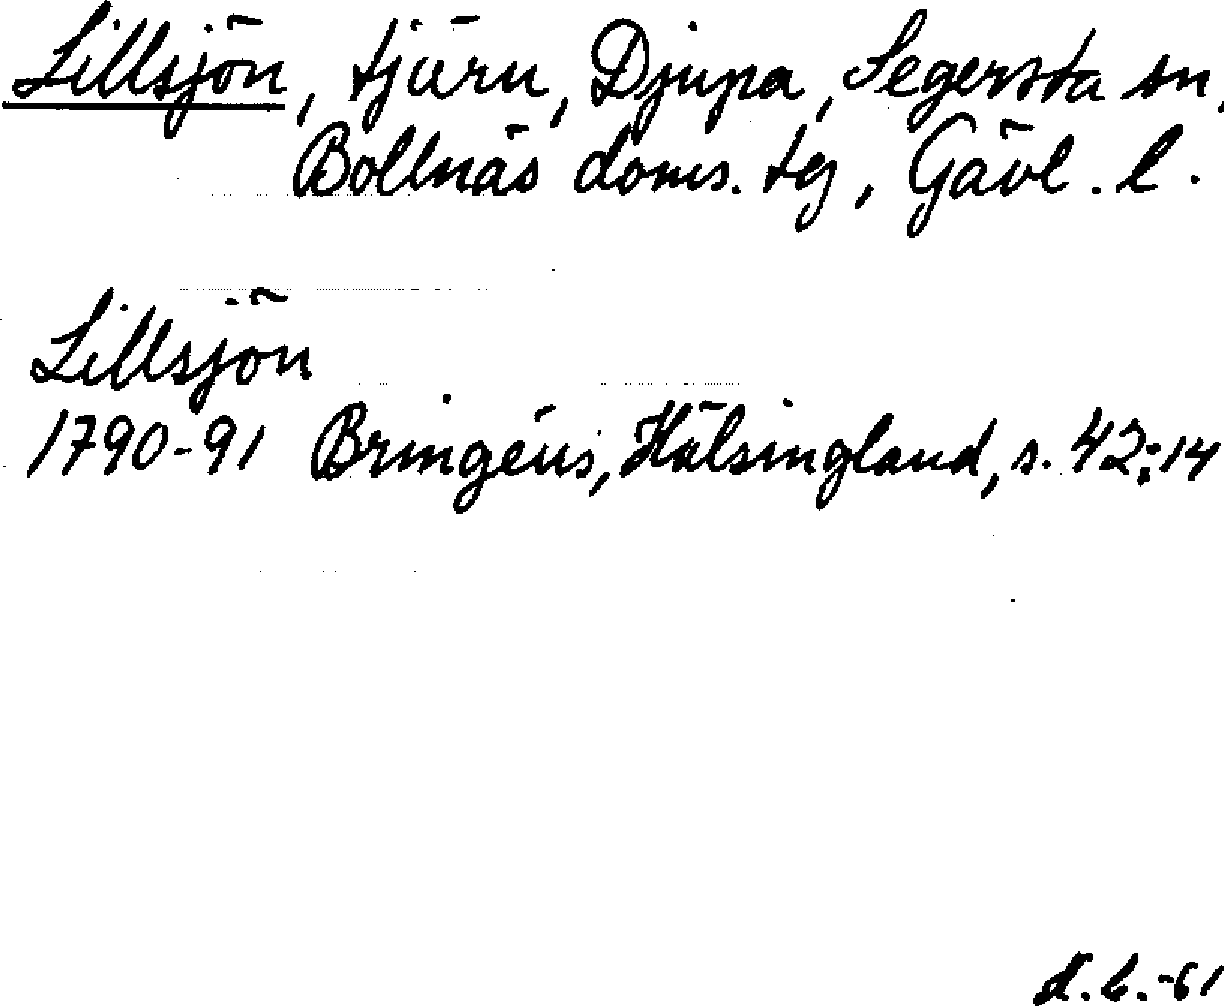 Lillsjön, tjärn, Djupa, Segersta sn,
Bollnäs doms. tg, Gävl. l.
Lillsjön
1790-91 Bringéus, Hälsingland, s. 42:14